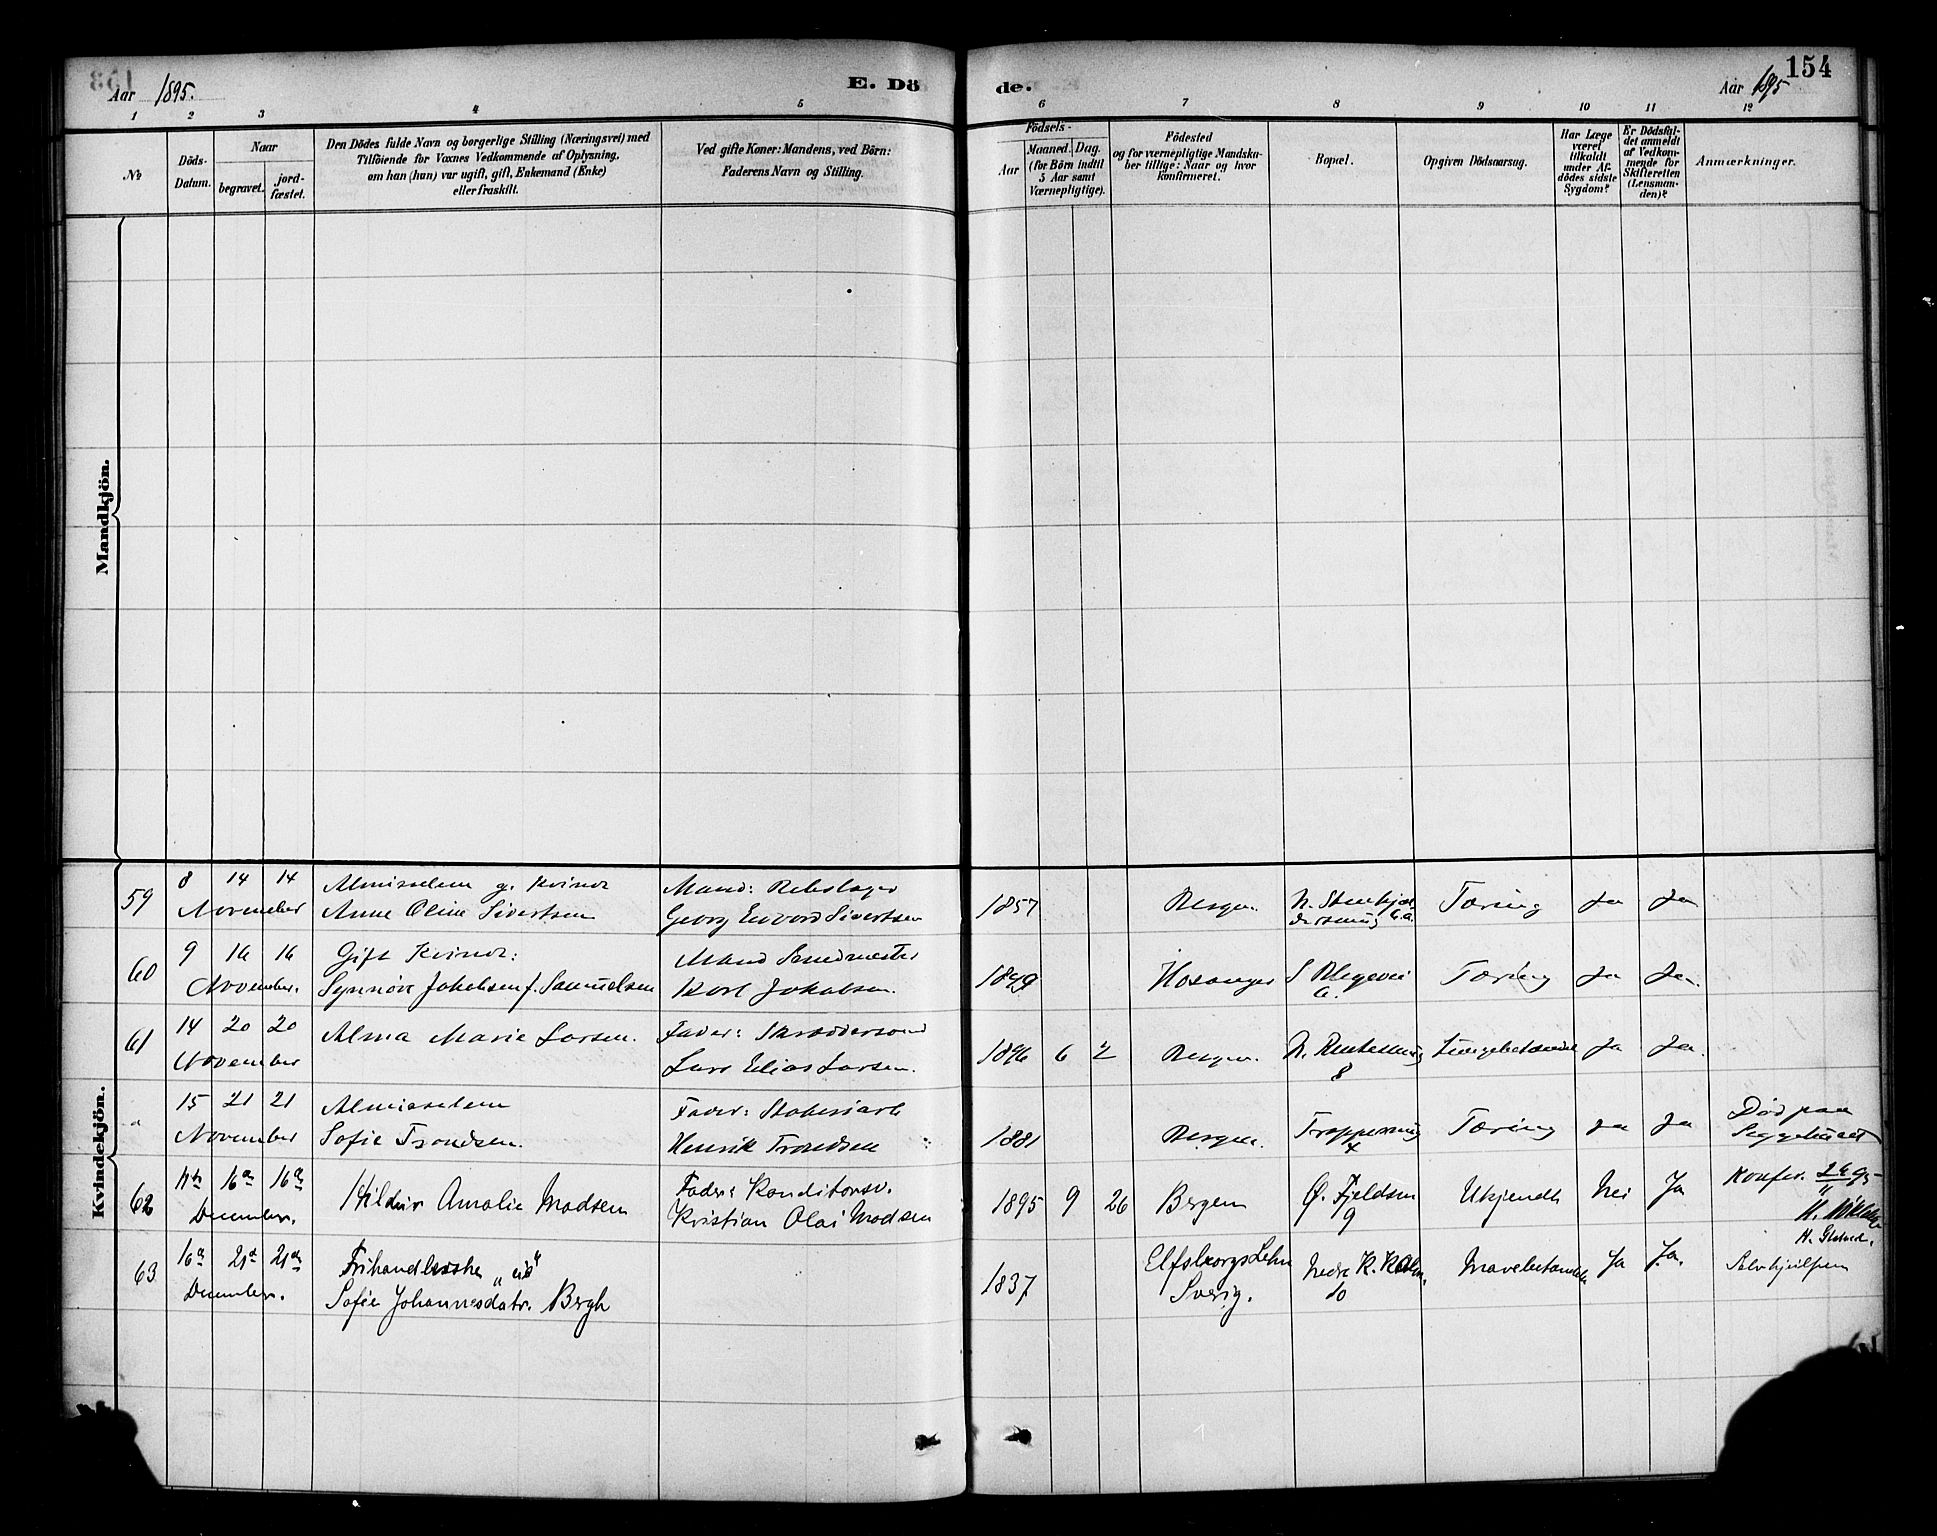 Aar 1895.
E. Döde.
154
Aar 1895
1 2 3 4 5 6 7 8 9 10 11 12
No
Döds-Datum.
Naar
begravet.
jord-fæstet.
Den Dödes fulde Navn og borgerlige Stilling (Næringsvei) med
Tilföiende for Voxnes Vedkommende af Oplysning,
om han (hun) var ugift, gift, Enkemand (Enke)
eller fraskilt.
Ved gifte Koner: Mandens, ved Börn:
Faderens Navn og Stilling.
Födsels-
Aar
Maaned. Dag.
(for Börn indtil
5 Aar samt
Værnepligtige).
Födested
og for værnepligtige Mandska-
ber tillige: Naar og hvor
konfirmeret.
Bopæl.
Opgiven Dödsaarsag.
Har Læge
været
tilkaldt
under Af-
dödes sidste
Sygdom?
Er Dödsfal-
det anmeldt
af Vedkom-
mende for
Skifteretten
(Lensman-
den)?
Anmærkninger.
Mandkjön.
Kvindekjön.
59 8 14 14 Almisselem g. Kvinde Mand: Rebslager
November Anne Oline Sivertsen Georg Edvard Sivertsen 1857 Bergen. Tæring Ja Ja
60 9 16 16 Gift Kvinde: Mand
November. Synnöve Jakobsen f. Samuelsen Karl Jakobsen. 1849 Hosanger Tæring Ja Ja.
61 14 20 20 Alma Marie Larsen. Fader: Skræddersvend
November Lars Elias Larsen. 1896 6 2 Bergen. 8 Lungebetændelse Ja Ja.
15 21 21 Almisselem Fader:
November Sofie Trondsen. Henrik Trondsen 1881 Bergen. Tæring Ja Ja Död paa
Sygehuset
62 16de 16de Hildur Amalie Madsen Fader: Konditorsv.
December. Kristian Olai Madsen 1895 9 26 Bergen Ø. Fjeldsm 9 Ukjendt Nei Ja
63 16de 21de 21de Frihandlerske
December. Sofie Johannesdatr. Bergh 1837 Elfsborgs Lehn
Sverig. Nedre K. 10 Mavebetændelse Ja Ja. Selvhjulpen